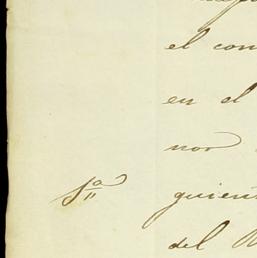 el con
en el
nor
1ª guien
del